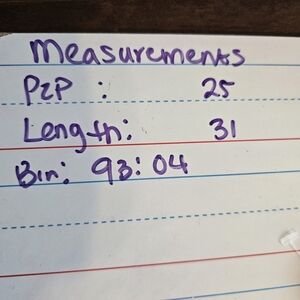 Measurements
P2P : 25
Length: 31
Bin: 93: 04